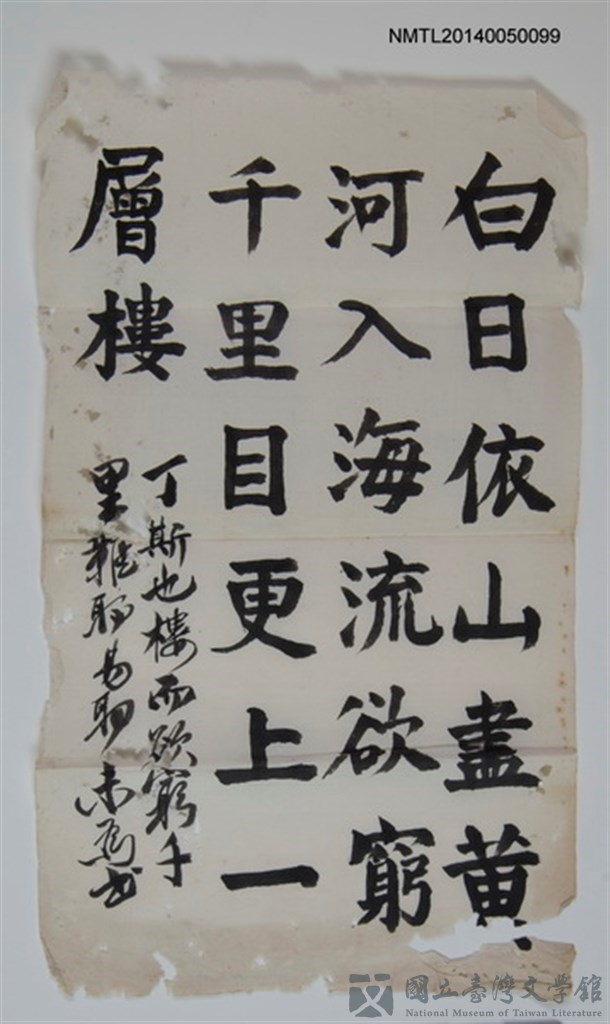 NMTL20140050099
白日依山盡黃
河入海流欲窮
千里目更上一
層樓
丁斯也樓而欲窮千
里難
國立臺灣文學館
National Museum of Taiwan Literature